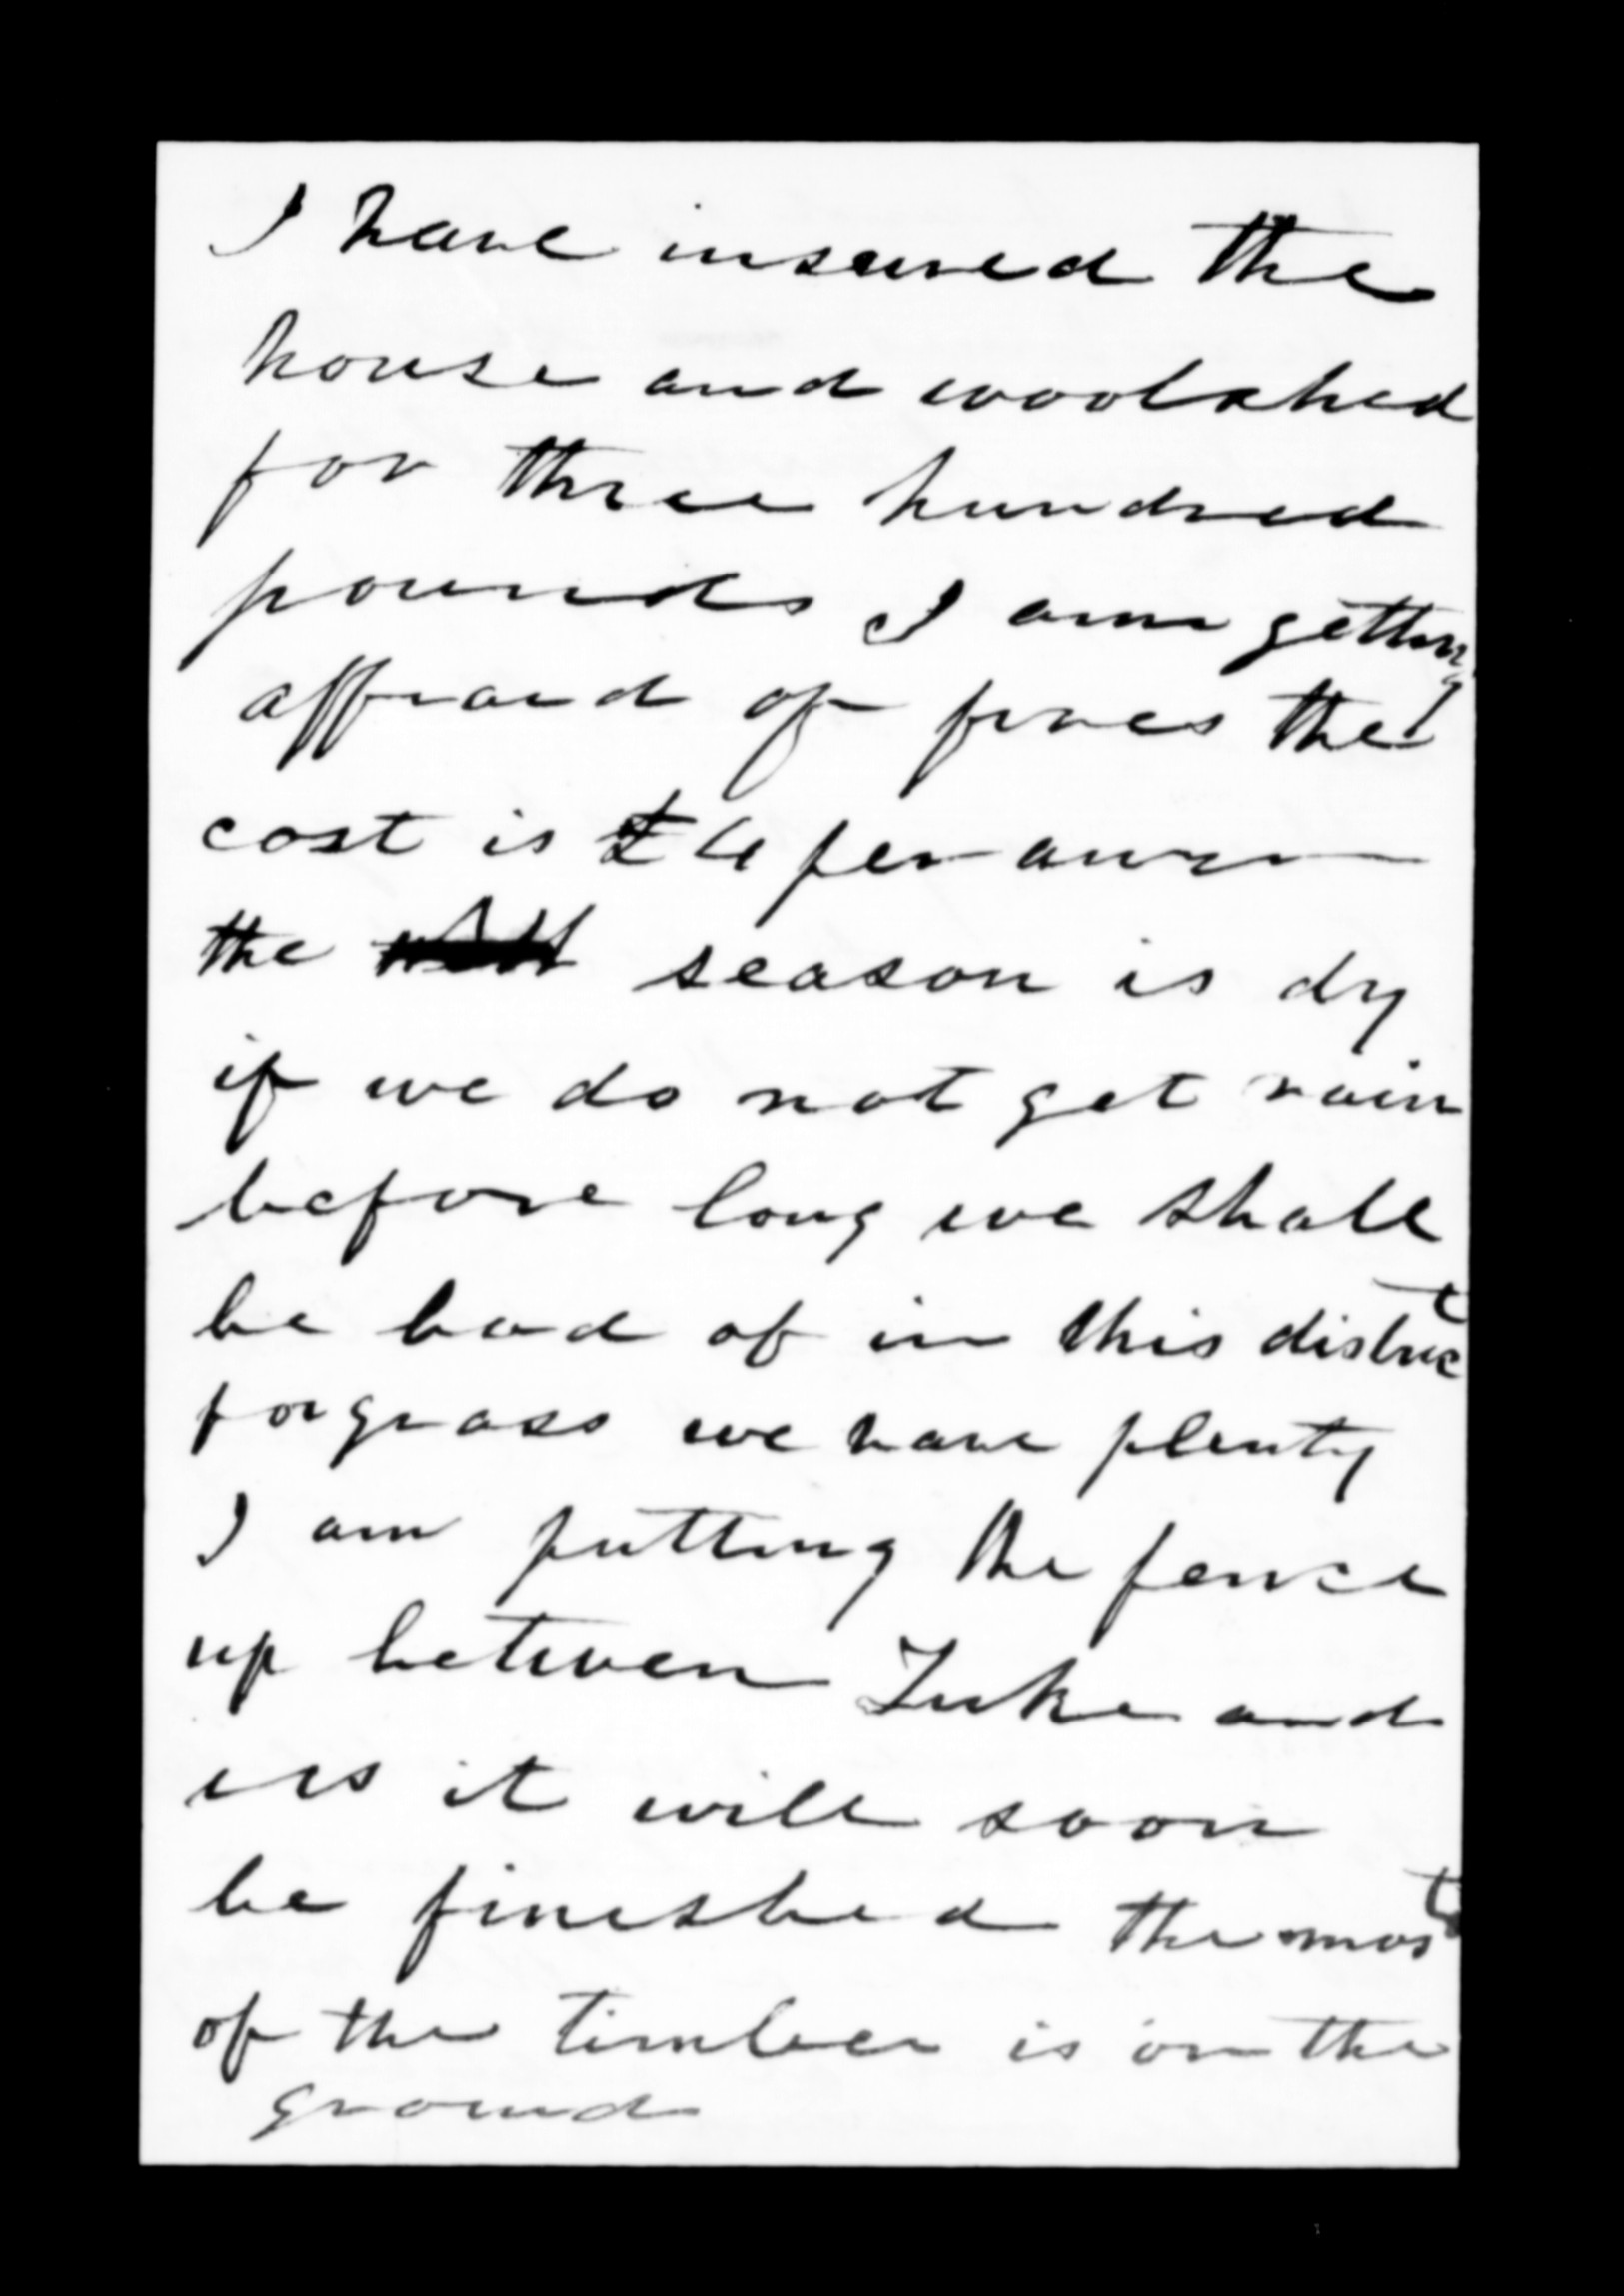 I have insured the
house and woolshed
for three hundred
pounds I am getting
affraid of fires the
cost is £4 per anum
the season is dry
if we do not get rain
before long we shall
be bad of in this district
for grass we have plenty
I am putting the fence
up between Tuke and
us it will soon
be finished the most
of the timber is on the
ground